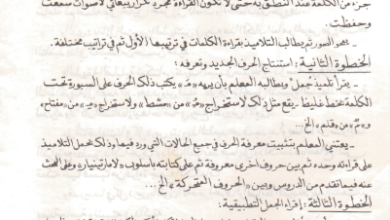 جزء من الكلمة عند النطق به حتى لا تكون القراءة مجرد تكرار ببغائي لأصوات سمعت
وحفظت.
- يمحو السور ثم يطالب التلاميذ بقراءة الكلمات في ترتيبها الأول ثم في تراتيب مختلفة.
الخطوة الثانية: استنتاج الحرف الجديد وتعرفه:
يقرأ تلميذ جمل ويطالبه المعلم بأن يمد» يكتب ذلك الحرف على السبورة تحت
الكلمة بخط غليظ. يقع مثل ذلك لاستخراج «مُ» من «مشط» ولاستخراج «مِـ» من «مفتاح»
و«مُ» من «قلم» الخ...
يعتني المعلم بتثبيت معرفة الحرف في جميع الحالات التي ورد فيها وذلك بحمل التلاميذ
على قراءته وحده ثم بين حروف اخرى معروفة ثم على كتابته بأسلوب «لامارتينيار» وعلى البحث
عنه فيما تقدم من الدروس وبين «الحروف المتحركة» الخ...
الخطوة الثالثة: إقراء الجمل التطبيقية: